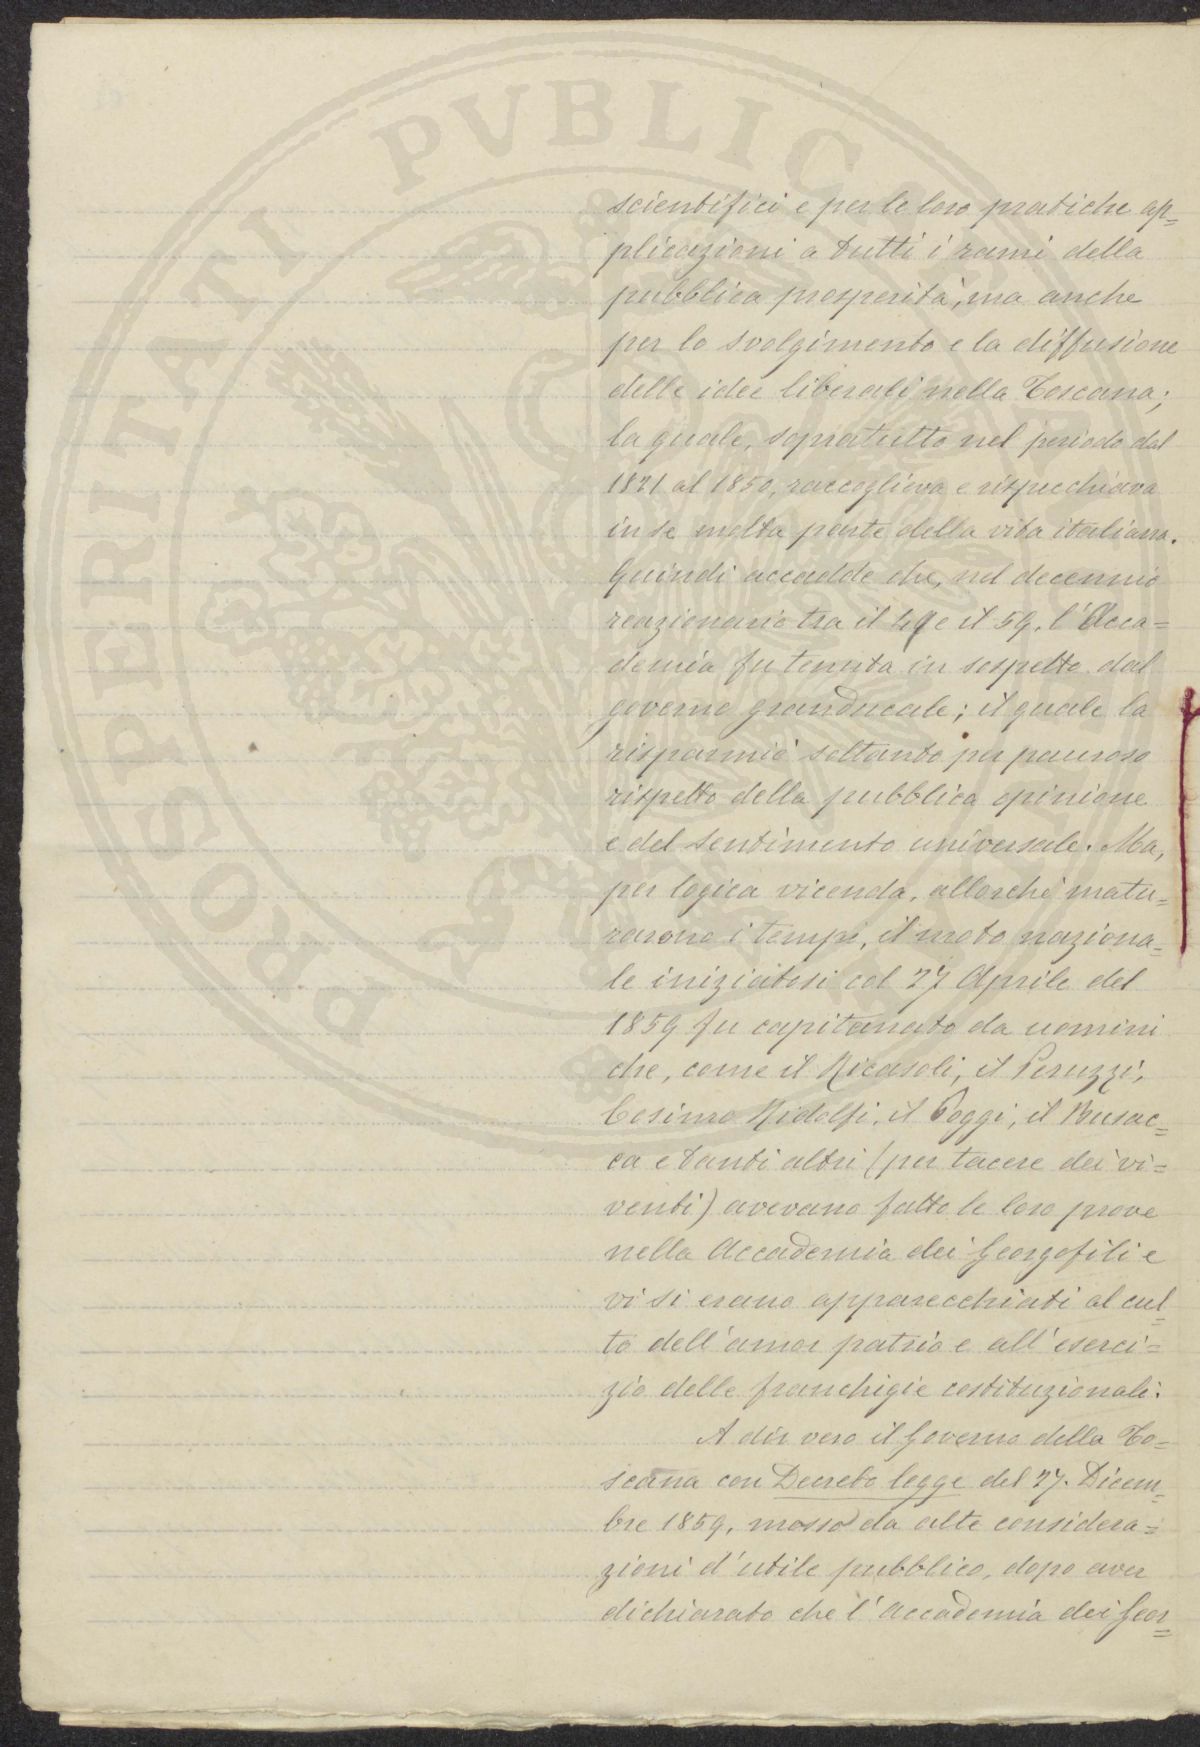 PROSPERITATI PVBLIC
scientifici e per le loro pratiche ap=
plicazioni a tutti i rami della
pubblica prosperità, ma anche
per lo svolgimento e la diffusione
delle idee liberali nella Toscana;
la quale, sopratutto nel periodo dal
1821 al 1850, raccoglieva e rispecchiava
in se molta parte della vita italiana.
Quindi accadde che, nel decennio
reazionario tra il 49 e il 59, l'Acca=
demia fu tenuta in sospetto dal
governo granducale; il quale la
risparmiò soltanto per pauroso
rispetto della pubblica opinione
e del sentimento universale. Ma,
per logica vicenda, allorchè matu=
rarono i tempi, il moto naziona=
le iniziatosi col 27 Aprile del
1859 fu capitanato da uomini
che, come il Ricasoli, il Peruzzi,
Cosimo Ridolfi, il Poggi, il Busac=
ca e tanti altri (per tacere dei vi=
venti) avevano fatto le loro prove
nella Accademia dei Georgofili e
vi si erano apparecchiati al cul=
to dell'amor patrio e all'eserci=
zio delle franchigie costituzionali.
A dir vero il Governo della To=
scana con Decreto legge del 27. Dicem=
bre 1859, mosso da alte considera=
zioni d'utile pubblico, dopo aver
dichiarato che l'Accademia dei Geor=